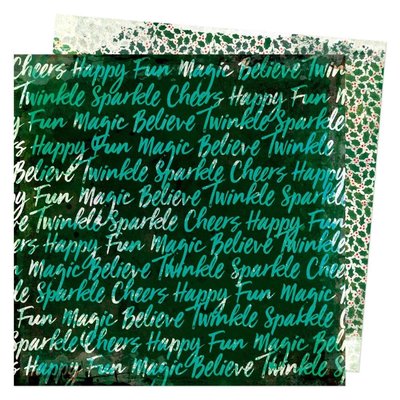 Cheers Happy Fun Magic Believe Twin
Twinkle Sparkle Cheers Happy Fun
Fun Magic Believe Twinkle Sparkle
Happy Fun Magic Believe Twinkle
Twinkle Sparkle Cheers Happy Fun
Fun Magic Believe Twinkle Sparkle
rs Happy Fun Magic Believe Twinkle
Magic Believe Twinkle Sparkle
le Sparkle Cheers Happy Fun Magic
Fun Magic Believe Twinkle Sparkle
Sparkle Cheers Happy Fun Magic
Happy Fun Magic Believe Twinkle